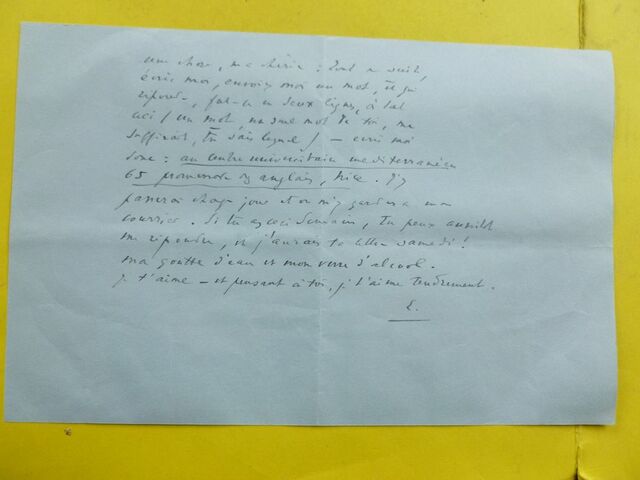 une chose, ma chérie : tout de suite,
écris moi, envoie moi un mot, et qui
réponde, fut-ce en deux lignes, à tout
ceci / un mot un seul mot de toi, me
suffirait, tu sais lequel / – écris moi
donc : au centre universitaire méditerranéen
65 promenade des anglais, Nice. J'y
passerai chaque jour et on m'y gardera mon
courrier. Si tu as ceci demain, tu peux aussitôt
me répondre, et j'aurais ta lettre samedi !
ma goutte d'eau et mon verre d'alcool.
je t'aime – et pensant à toi, je t'aime tendrement.
E.